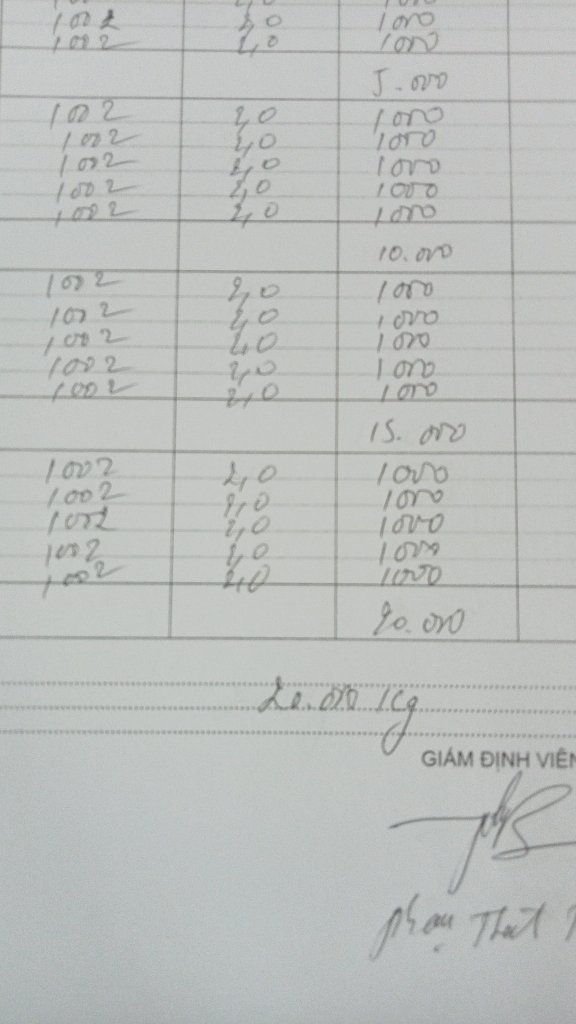 1002 2,0 1000
1002 2,0 1000
5.000
1002 2,0 1000
1002 2,0 1000
1002 2,0 1000
1002 2,0 1000
1002 2,0 1000
10.000
1002 2,0 1000
1002 2,0 1000
1002 2,0 1000
1002 2,0 1000
1002 2,0 1000
15.000
1002 2,0 1000
1002 2,0 1000
1002 2,0 1000
1002 2,0 1000
1002 2,0 1000
20.000
20.000 kg
GIÁM ĐỊNH VIÊN